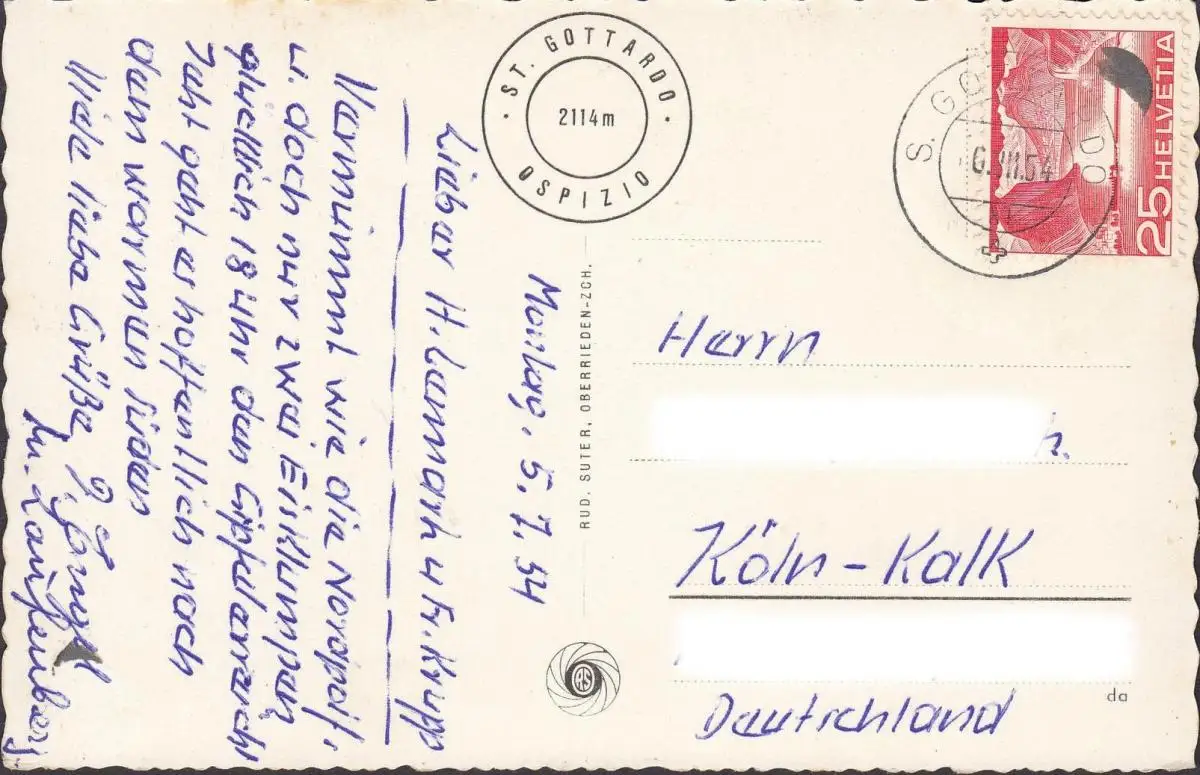 ST. GOTTARDO
2114 m
OSPIZIO
Montag, 5.7.54
Lieber H. u. Fr. Krupp
Vermummt wie die Nordpolf.
u. doch nur zwei Eisklumpen,
glücklich 18 Uhr den Gipfel erreicht
Jetzt geht es hoffentlich nach
dem warmen Süden
Viele liebe Grüße
Laufenberg
RUD. SUTER, OBERRIEDEN-ZCH.
RS
S. GO
DO
VII.54
25 HELVETIA
Herrn
h.
Köln-Kalk
Deutschland
da